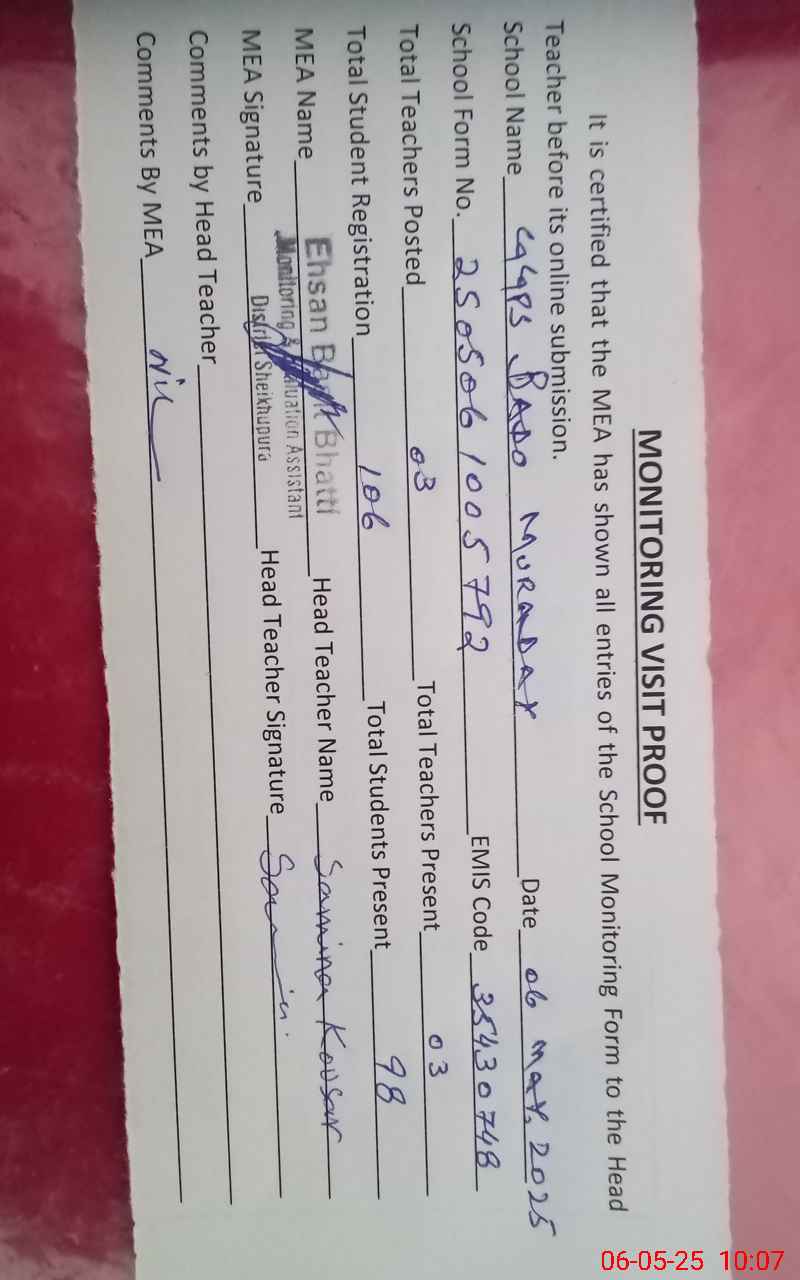 MONITORING VISIT PROOF
It is certified that the MEA has shown all entries of the School Monitoring Form to the Head
Teacher before its online submission.
School Name GGPS BADO MURADAY Date 06 MAY, 2025
School Form No. 2505061005792 EMIS Code 35430748
Total Teachers Posted 03 Total Teachers Present 03
Total Student Registration 106 Total Students Present 98
MEA Name Ehsan Bhatti Head Teacher Name Samina Kousar
Monitoring & Evaluation Assistant
District Sheikhupura
MEA Signature Head Teacher Signature
Comments by Head Teacher
Comments By MEA Nil
06-05-25 10:07